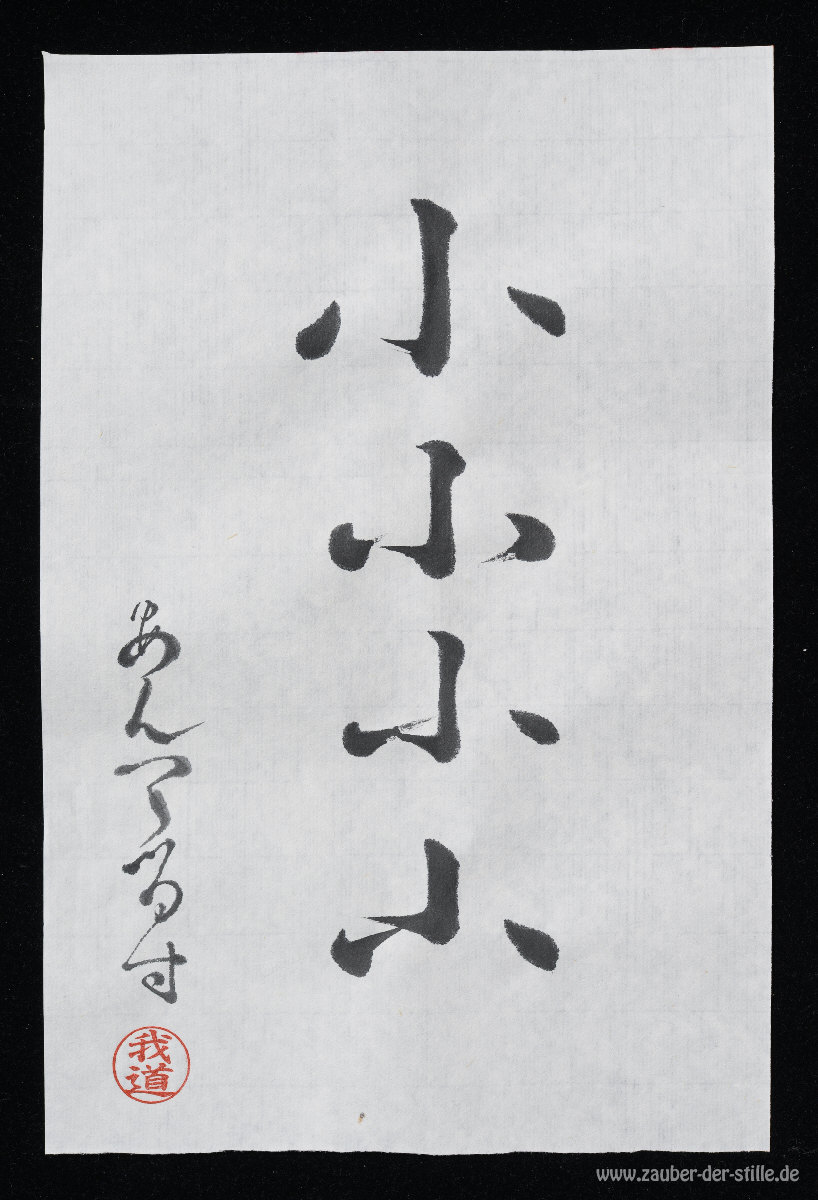 小小小小
我道
www.zauber-der-stille.de